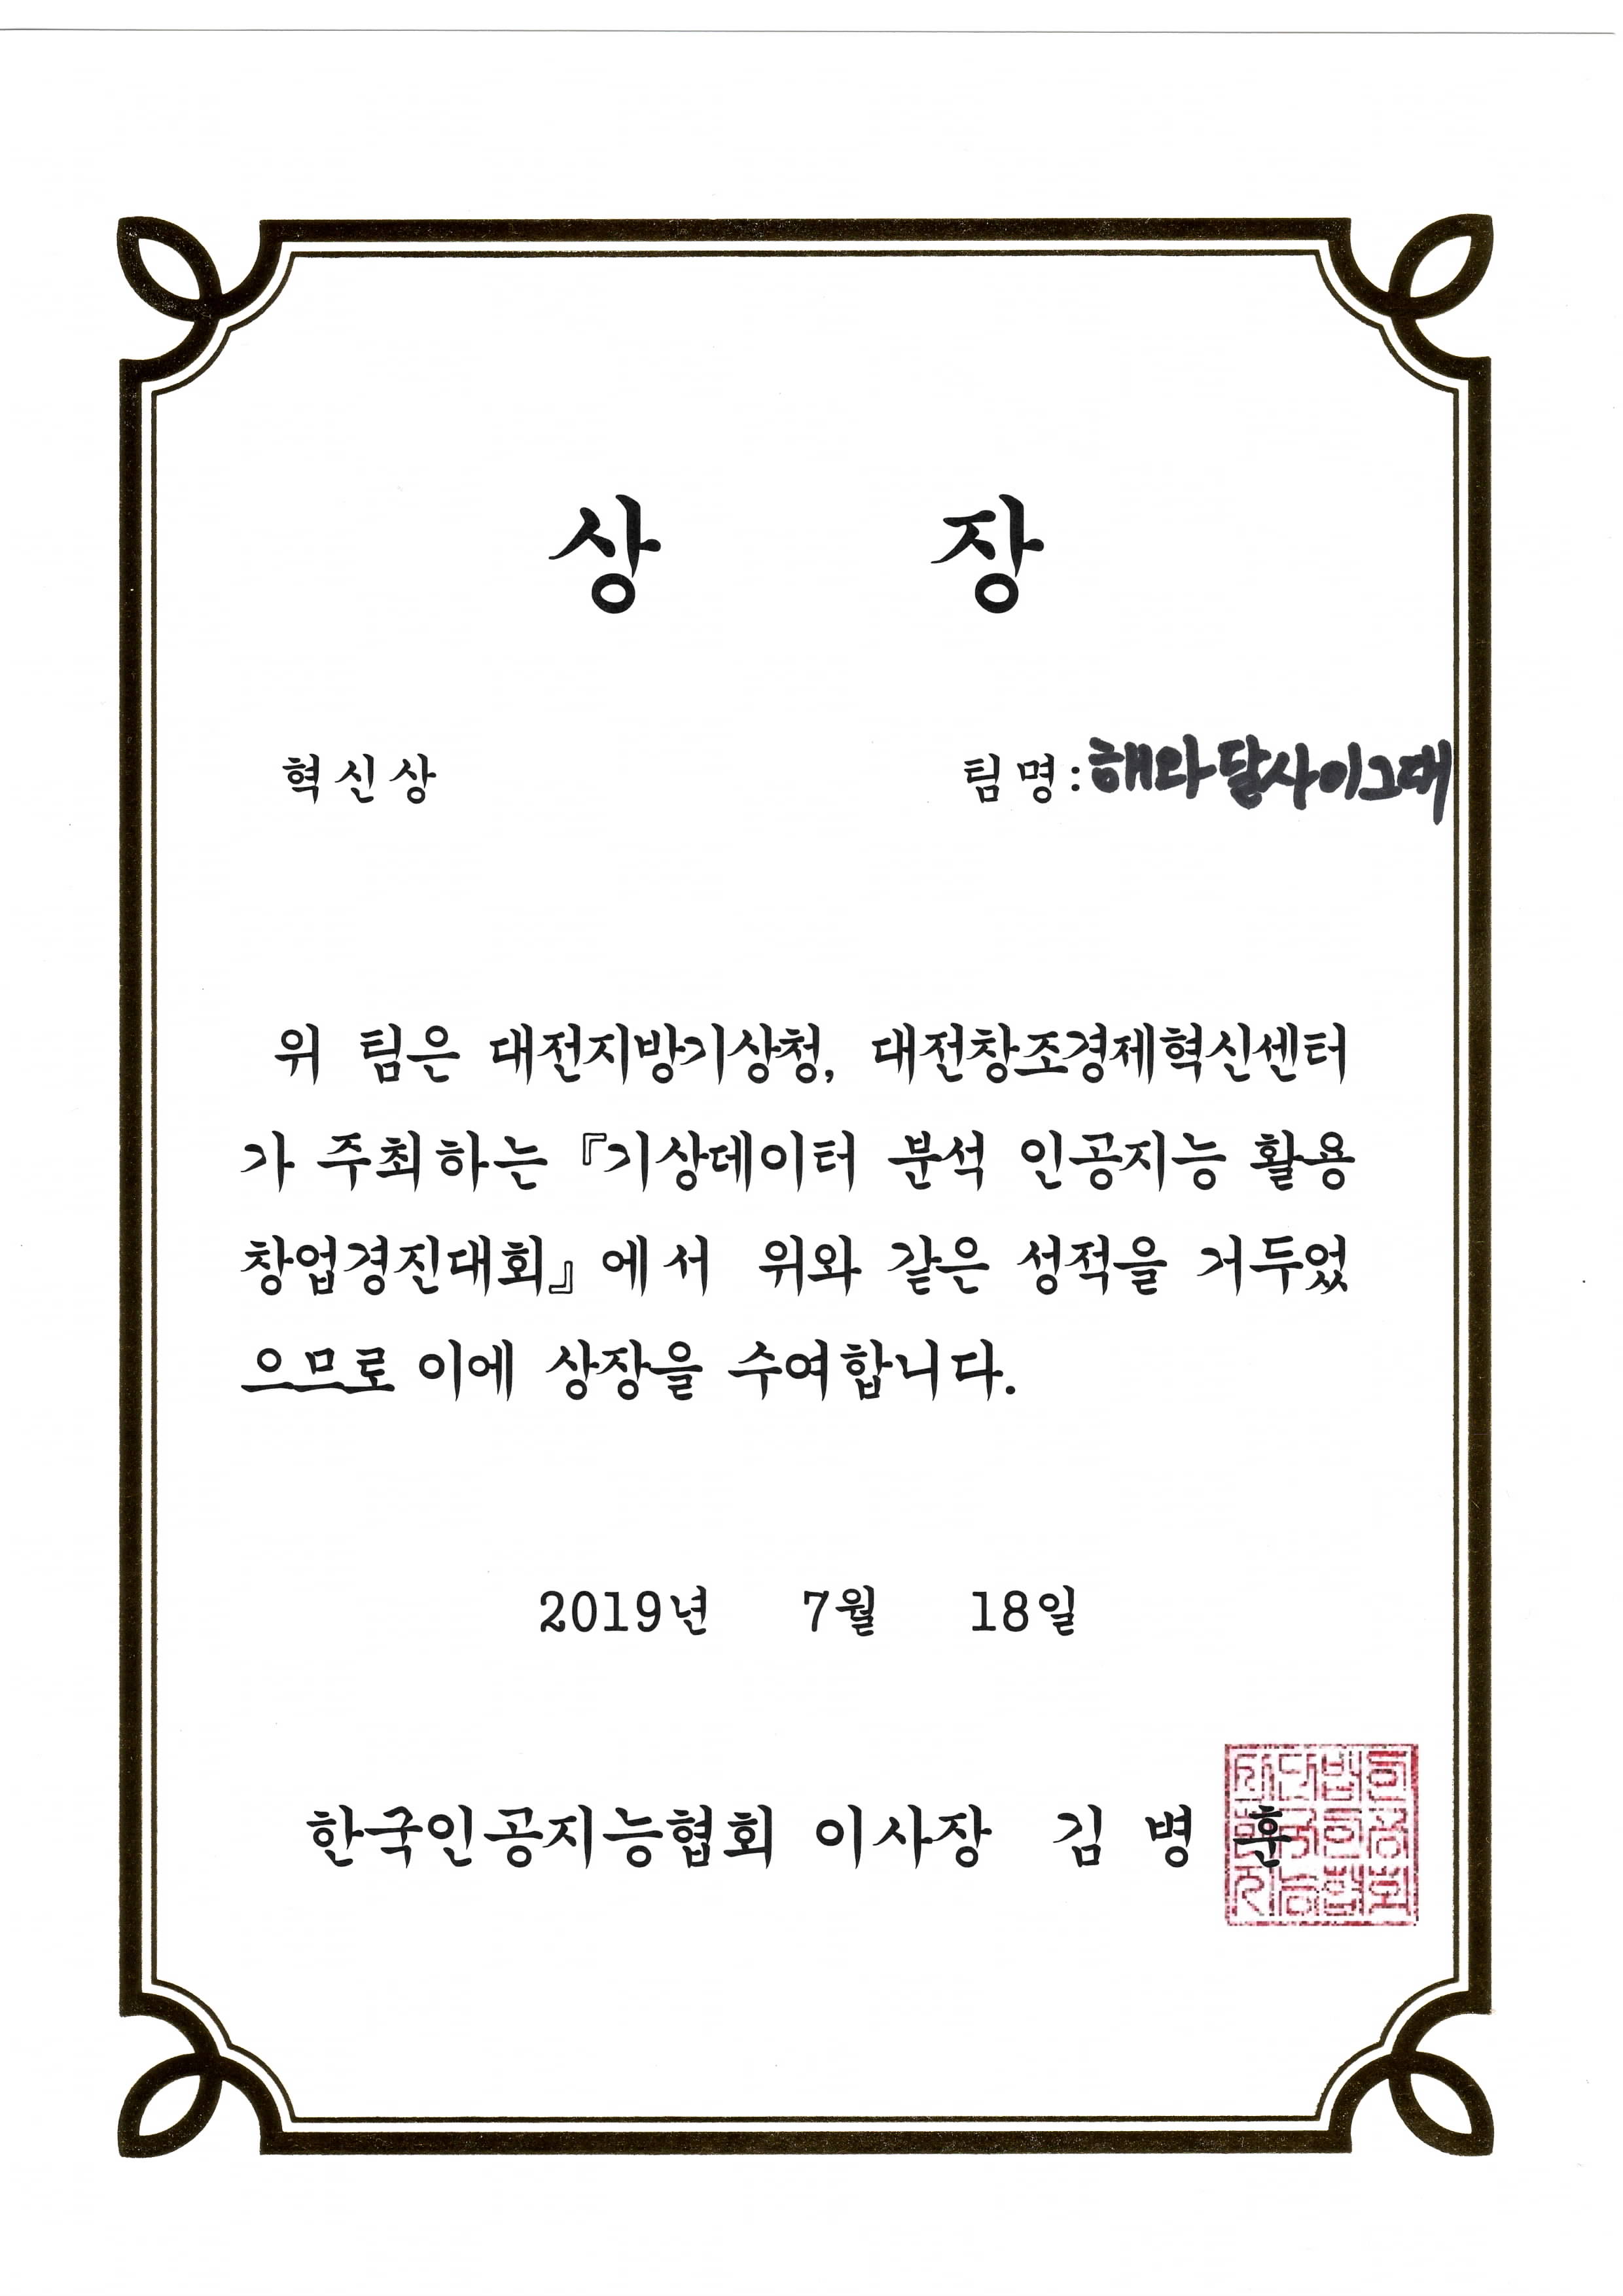 상 장
혁신상 팀명: 해와달사이그대
위 팀은 대전지방기상청, 대전창조경제혁신센터
가 주최하는 『기상데이터 분석 인공지능 활용
창업경진대회』에서 위와 같은 성적을 거두었
으므로 이에 상장을 수여합니다.
2019년 7월 18일
한국인공지능협회 이사장 김 병 훈